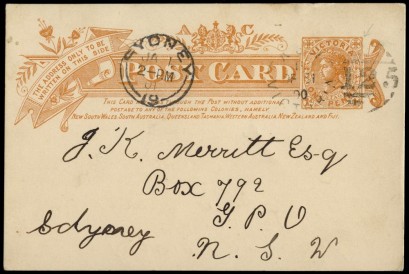 A C
VICTORIA
THE ADDRESS ONLY TO BE
WRITTEN ON THIS SIDE
POST CARD
SYDNEY
JA
2 PM
01
19
PENNY
125
THIS CARD THROUGH THE POST WITHOUT ADDITIONAL
POSTAGE TO ANY OF THE FOLLOWING COLONIES, NAMELY
NEW SOUTH WALES, SOUTH AUSTRALIA, QUEENSLAND, TASMANIA, WESTERN AUSTRALIA, NEW ZEALAND AND FIJI.
J. K. Merritt Esq
Box 792
G. P. O
Sdyney
N. S. W